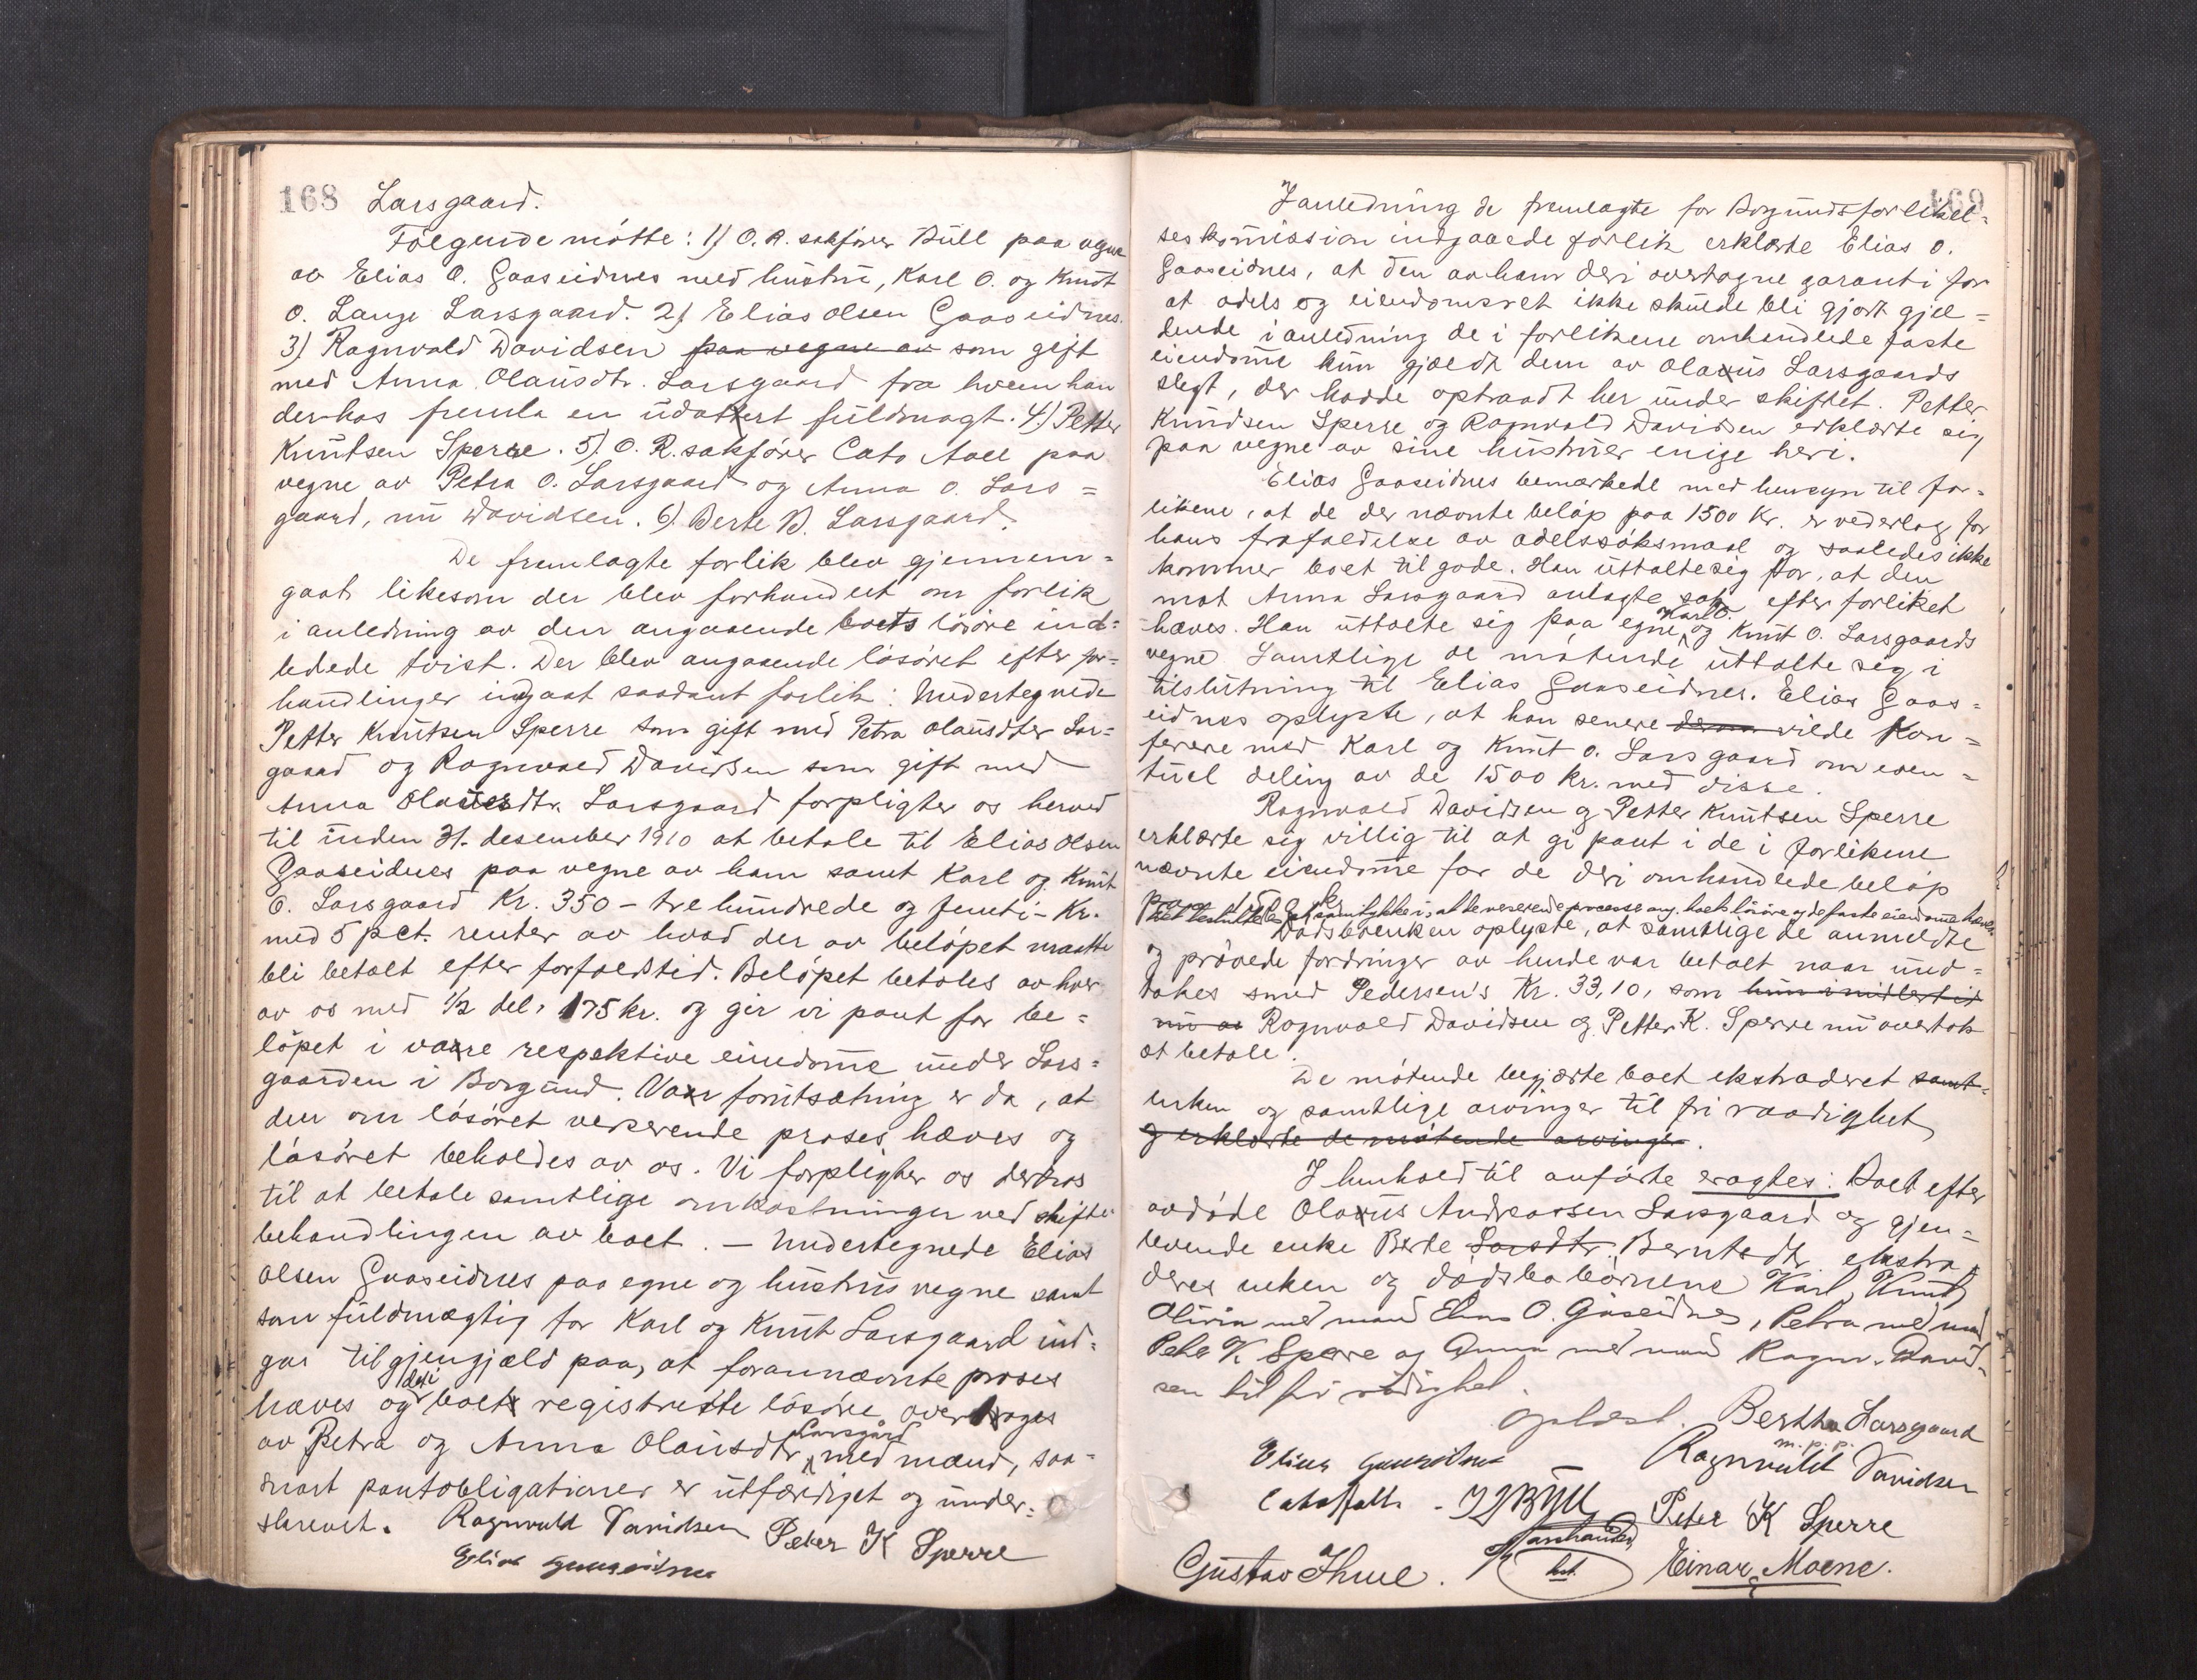 168 Larsgaard.
Følgende møtte: 1) O.R. sakfører Bull paa vegne
av Elias O. Gaaseidnes med hustru, Karl O. og Knut
O. Lange Larsgaard. 2) Elias Olsen Gaaseidnes.
3) Ragnvald Davidsen paa vegne av som gift
med Anna Olausdtr. Larsgaard fra hvem han
derhos fremla en udatert fuldmagt. 4) Petter
Knutsen Sperre. 5) O.R. sakfører Cato Aall paa
vegne av Petra O. Larsgaard og Anna O. Lars=
gaard, nu Davidsen. 6) Berte B. Larsgaard.
De fremlagte forlik blev gjennem=
gaat likesom der blev forhandlet om forlik
i anledning av den angaaende boets løsøre ind=
ledede tvist. Der blev angaaende løsøret efter for=
handlinger indgaat saadant forlik: Undertegnede
Petter Knutsen Sperre som gift med Petra Olausdter Lar=
gaard og Ragnvald Davidsen som gift med
Anna Olausdtr. Larsgaard forpligter os herved
til inden 31. desember 1910 at betale til Elias Olsen
Gaaseidnes paa vegne av ham samt Karl og Knut
O. Larsgaard Kr. 350 - tre hundrede og femti - Kr.
med 5 pct. renter av hvad der av beløpet maatte
bli betalt efter forfaldstid. Beløpet betales av hver
av os med 1/2 del, 175 kr. og gir vi pant for be=
løpet i vaare respektive eiendomme under Lars=
gaarden i Borgund. Vaar forutsætning er da, at
den om løsøret verserende proses hæves og
løsøret beholdes av os. Vi forpligter os derhos
til at betale samtlige omkostninger ved skifte-
behandlingen av boet. — Undertegnede Elias
Olsen Gaaseidnes paa egne og hustrus vegne samt
som fuldmægtig for Karl og Knut Larsgaard ind=
gar til gjengjæld paa, at forannævnte proses
hæves og det i boet registrerte løsøre overtages
av Petra og Anna Olausdtr Larsgård med mænd, saa-
snart pantobligationer er utfærdiget og under=
skrevet. Ragnvald Davidsen Peter K Sperre
Elias Gaaseidnes
169
I anledning de fremlagte for Borgunds forlikel=
seskommission indgaaede forlik erklærte Elias O.
Gaaseidnes, at den av ham deri overtagne garanti for
at odels og eiendomsret ikke skulde bli gjort gjæl=
dende i anledning de i forlikene omhandlede faste
eiendomme kun gjældt dem av Olaus Larsgaards
slegt, der hadde optraadt her under skiftet. Petter
Knudsen Sperre og Ragnvald Davidsen erklærte sig
paa vegne av sine hustruer enige heri.
Elias Gaaseidnes bemærkede med hensyn til for=
likene, at de der nævnte beløp paa 1500 Kr. er vederlag for
hans frafaldelse av odelssøksmaal og saaledes ikke
kommer boet til gode. Han uttalte sig for, at den
mot Anna Larsgaard anlagte sak efter forliket
hæves. Han uttalte sig paa egne, Karl O. og Knut O. Larsgaards
vegne. Samtlige de møtende uttalte sig i
tilslutning til Elias Gaaseidnes. Elias Gaas=
eidnes oplyste, at han senere vilde kon=
ferere med Karl og Knut O. Larsgaard om even=
tuel deling av de 1500 kr. med disse.
Ragnvald Davidsen og Petter Knutsen Sperre
erklærte sig villig til at gi pant i de i forlikene
nævnte eiendomme for de deri omhandlede beløp
paa 1500 kr.
at de verserende processe ang. boets løsøre og de faste eiendomme hæves.
Dødsboenken oplyste, at samtlige de anmeldte
og prøvede fordringer av hende var betalt naar und=
takes smed Pedersen's Kr. 33,10, som hun imidlertid
nu av Ragnvald Davidsen og Petter K. Sperre nu overtok
at betale.
De møtende begjærte boet ekstraderet samt-
enken og samtlige arvinger til fri raadighet
og erklærte de møtende arvinger.
I henhold til anførte eragtes: Boet efter
avdøde Olaus Andreassen Larsgaard og gjen=
levende enke Berte Larsdtr. Berntsdtr. ekstra=
deres enken og dødsbobørnene Karl, Knut,
Olivia med mand Elias O. Gåseidnes, Petra med mand
Peter K. Sperre og Anna med mand Ragnv. David=
sen til fri rådighet.
Oplæst. Bertha Larsgaard
m.p.p.
Elias Gaaseidnes — Ragnvald Davidsen
Cato Aall. - Bull Peter K Sperre
Gustav Thue. Einar Moene.